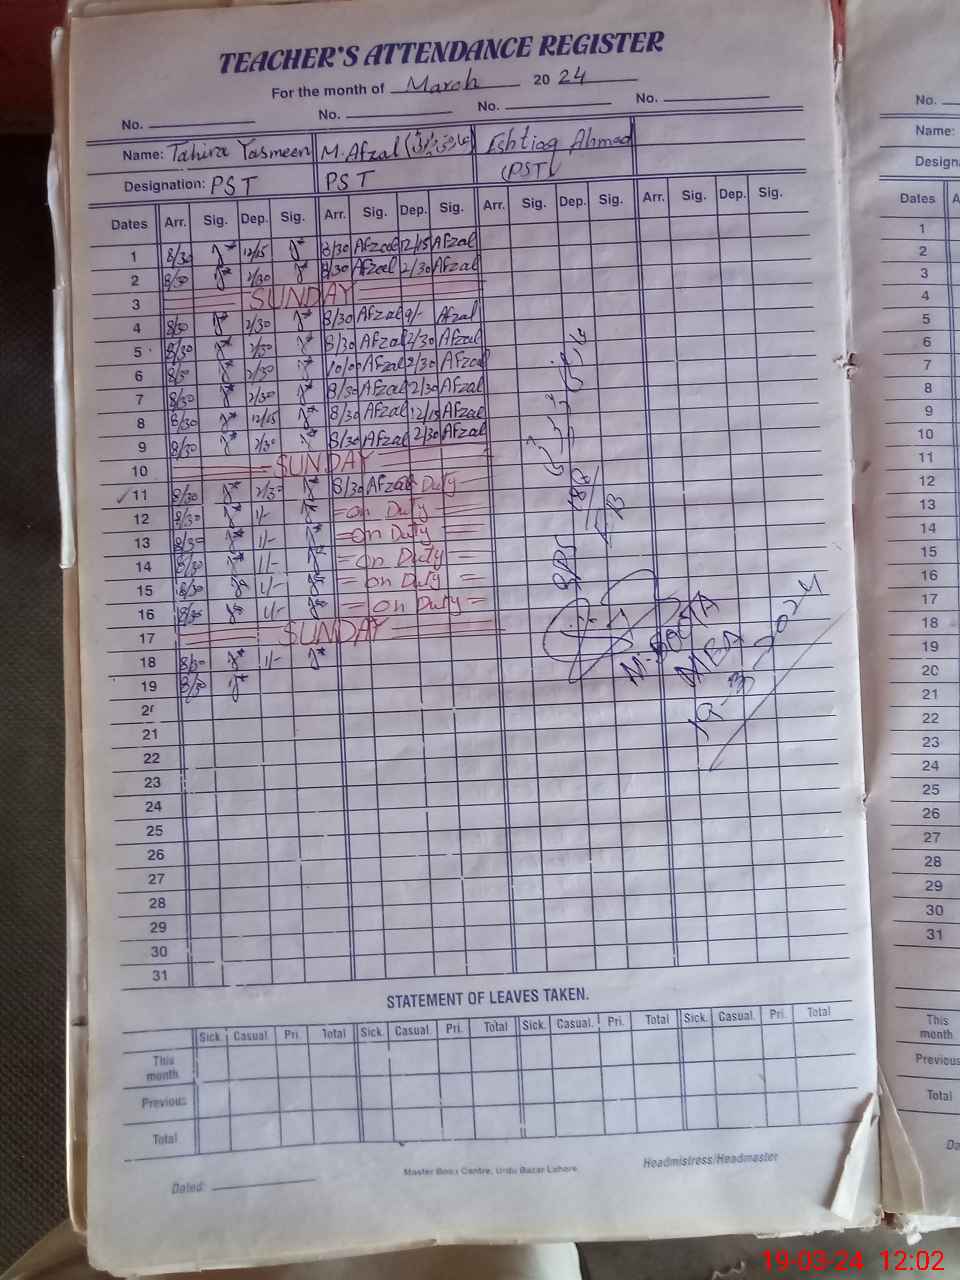 TEACHER'S ATTENDANCE REGISTER
For the month of March 2024
No. No. No. No.
Name: Tahira Yasmeen M. Afzal Eshtiaq Ahmad
Designation: PST PST (PST)
Dates Arr. Sig. Dep. Sig. Arr. Sig. Dep. Sig. Arr. Sig. Dep. Sig. Arr. Sig. Dep. Sig.
1 8/30 12/15 8/30 Afzal 12/15 Afzal
2 8/30 2/30 8/30 Afzal 2/30 Afzal
3 SUNDAY
4 8/30 2/30 8/30 Afzal 9/- Afzal
5 8/30 2/30 8/30 Afzal 2/30 Afzal
6 8/30 2/30 10/00 Afzal 2/30 Afzal
7 8/30 2/30 8/30 Afzal 2/30 Afzal
8 8/30 12/15 8/30 Afzal 12/15 Afzal
9 8/30 2/30 8/30 Afzal 2/30 Afzal
10 SUNDAY
11 8/30 2/30 8/30 Afzal Duty
12 8/30 1/- on Duty
13 8/30 1/- on Duty
14 8/30 1/- on Duty
15 8/30 1/- on Duty
16 8/30 1/- on Duty
17 SUNDAY
18 8/30 1/-
19 8/30
20
21
22
23
24
25
26
27
28
29
30
31
MEA
19-3-2024
STATEMENT OF LEAVES TAKEN.
Sick. Casual. Pri. Total Sick. Casual. Pri. Total Sick. Casual. Pri. Total Sick. Casual. Pri. Total
This month
Previous
Total
Master Book Centre, Urdu Bazar Lahore.
Headmistress/Headmaster
Dated:
No.
Name:
Design
Dates A
1
2
3
4
5
6
7
8
9
10
11
12
13
14
15
16
17
18
19
20
21
22
23
24
25
26
27
28
29
30
31
This month
Previous
Total
Da
19-03-24 12:02